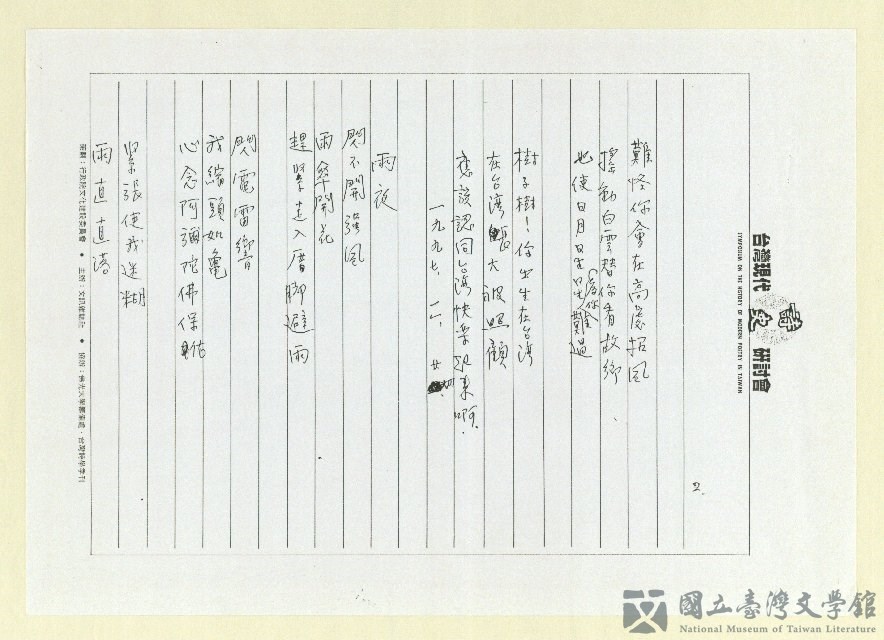 台灣現代詩史研討會
SYMPOSIUM ON THE HISTORY OF MODERN POETRY IN TAIWAN
2.
難怪你會在高處招風
搖動白雲替你看故鄉、
也使日月星星為你難過
樹子樹！你出生在台灣
在台灣長大被照顧
應該認同台灣快樂起來啊．
一九九七、一一、廿
雨夜
閃不開強風
雨傘開花
趕緊走入厝腳避雨
閃電雷響
我縮頭如龜
心念阿彌陀佛保佑
緊張使我迷糊
雨直直落
策劃：行政院文化建設委員會 ● 主辦：文訊雜誌社 ● 協辦：佛光大學籌備處、台灣詩學季刊
國立臺灣文學館
National Museum of Taiwan Literature